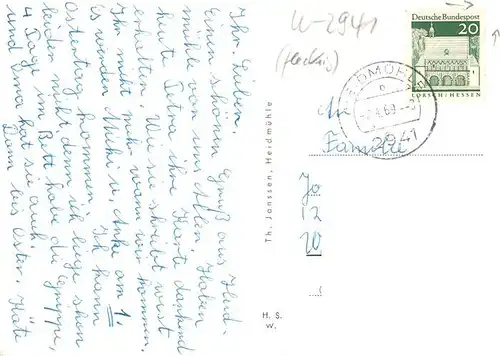 Ihr Lieben.
Einen schönen Gruß aus Heid-
mühle von uns Allen. Haben
heute Jutna ihre Karte dankend
erhalten. Wie sie schreibt wißt
Ihr nicht mehr wann wir kommen.
Es werden Michi u. Anke am 1.
Ostertag kommen, ich kann
leider nicht, denn ich liege schon
4 Tage im Bett habe die Grippe,
und Irma hat sie auch.
Dann bis Ostern. Käte
Th. Janssen, Heidmühle
H. S.
W.
W-2941
(fleckig)
Deutsche Bundespost
20
LORSCH/HESSEN
HEIDMÜHLE
2941
An
Familie
Jo
12
20